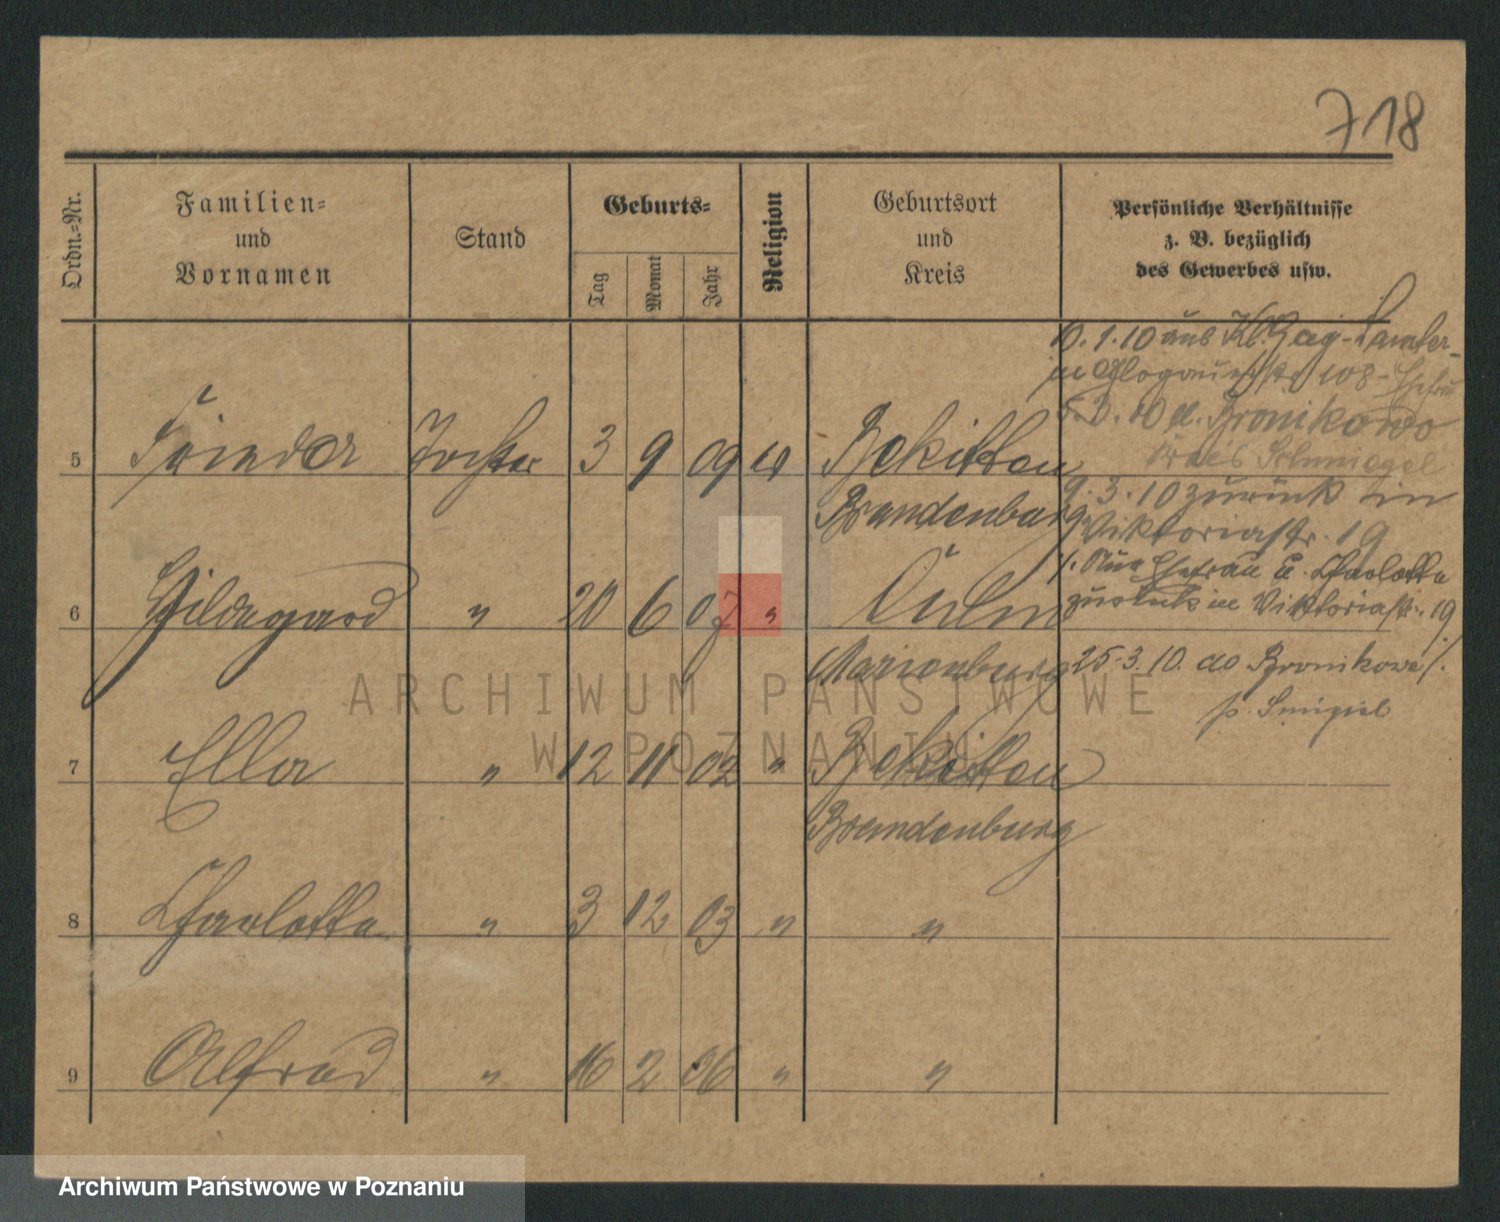 718
Ordn.=Nr.
Familien=
und
Vornamen
Stand
Geburts=
Tag
Monat
Jahr
Religion
Geburtsort
und
Kreis
Persönliche Verhältnisse
z. B. bezüglich
des Gewerbes usw.
10.1.10 aus
in Glogauerstr 108 - Ehefrau
Bronikowo
Kreis Schmiegel
5 Frieda Tochter 3 9 09
Brandenburg
9.3.10 zurück in
Viktoriastr. 19
/. Nur Ehefrau u. Charlotte
zurück in Viktoriastr. 19
6 Hildegard " 20 6 07 " Culm
Marienburg
25.3.10. do Bronikowo /.
p. Smigiel
7 Ella " 12 11 02 "
Brandenburg
8 Charlotte " 3 12 03 " "
9 Alfred " 16 2 06 " "
ARCHIWUM PAŃSTWOWE
W POZNANIU
Archiwum Państwowe w Poznaniu